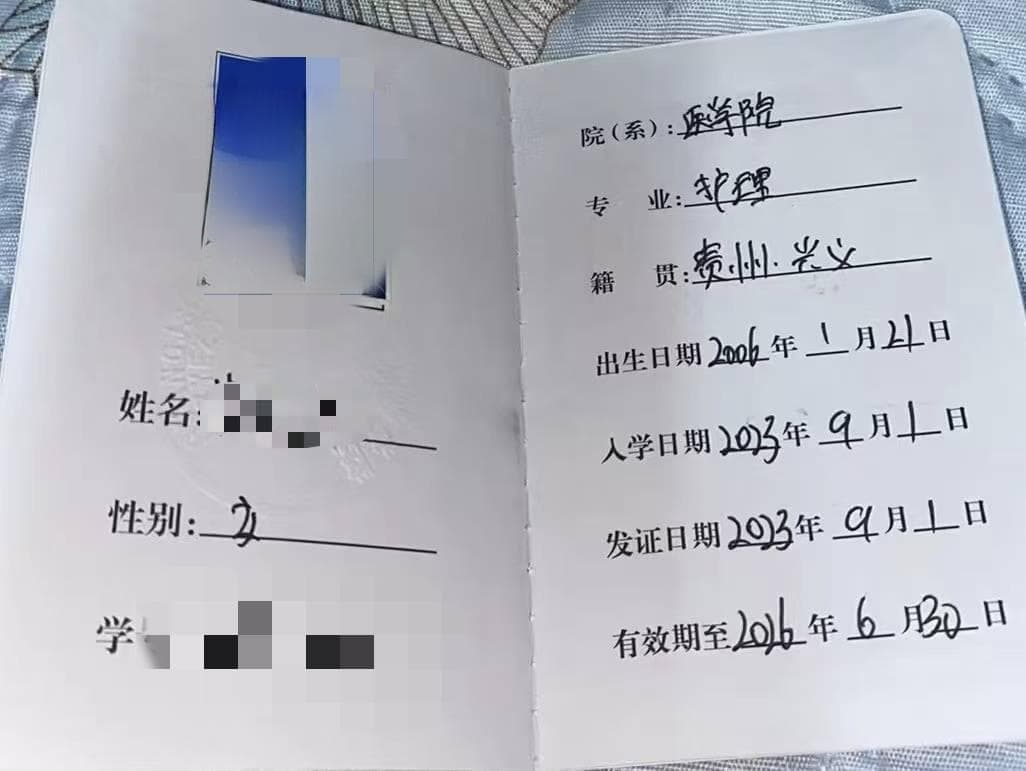 姓名:
性别: 女
学
院(系): 医学院
专 业: 护理
籍 贯: 贵州.兴义
出生日期 2006 年 1 月 21 日
入学日期 2023 年 9 月 1 日
发证日期 2023 年 9 月 1 日
有效期至 2026 年 6 月 30 日